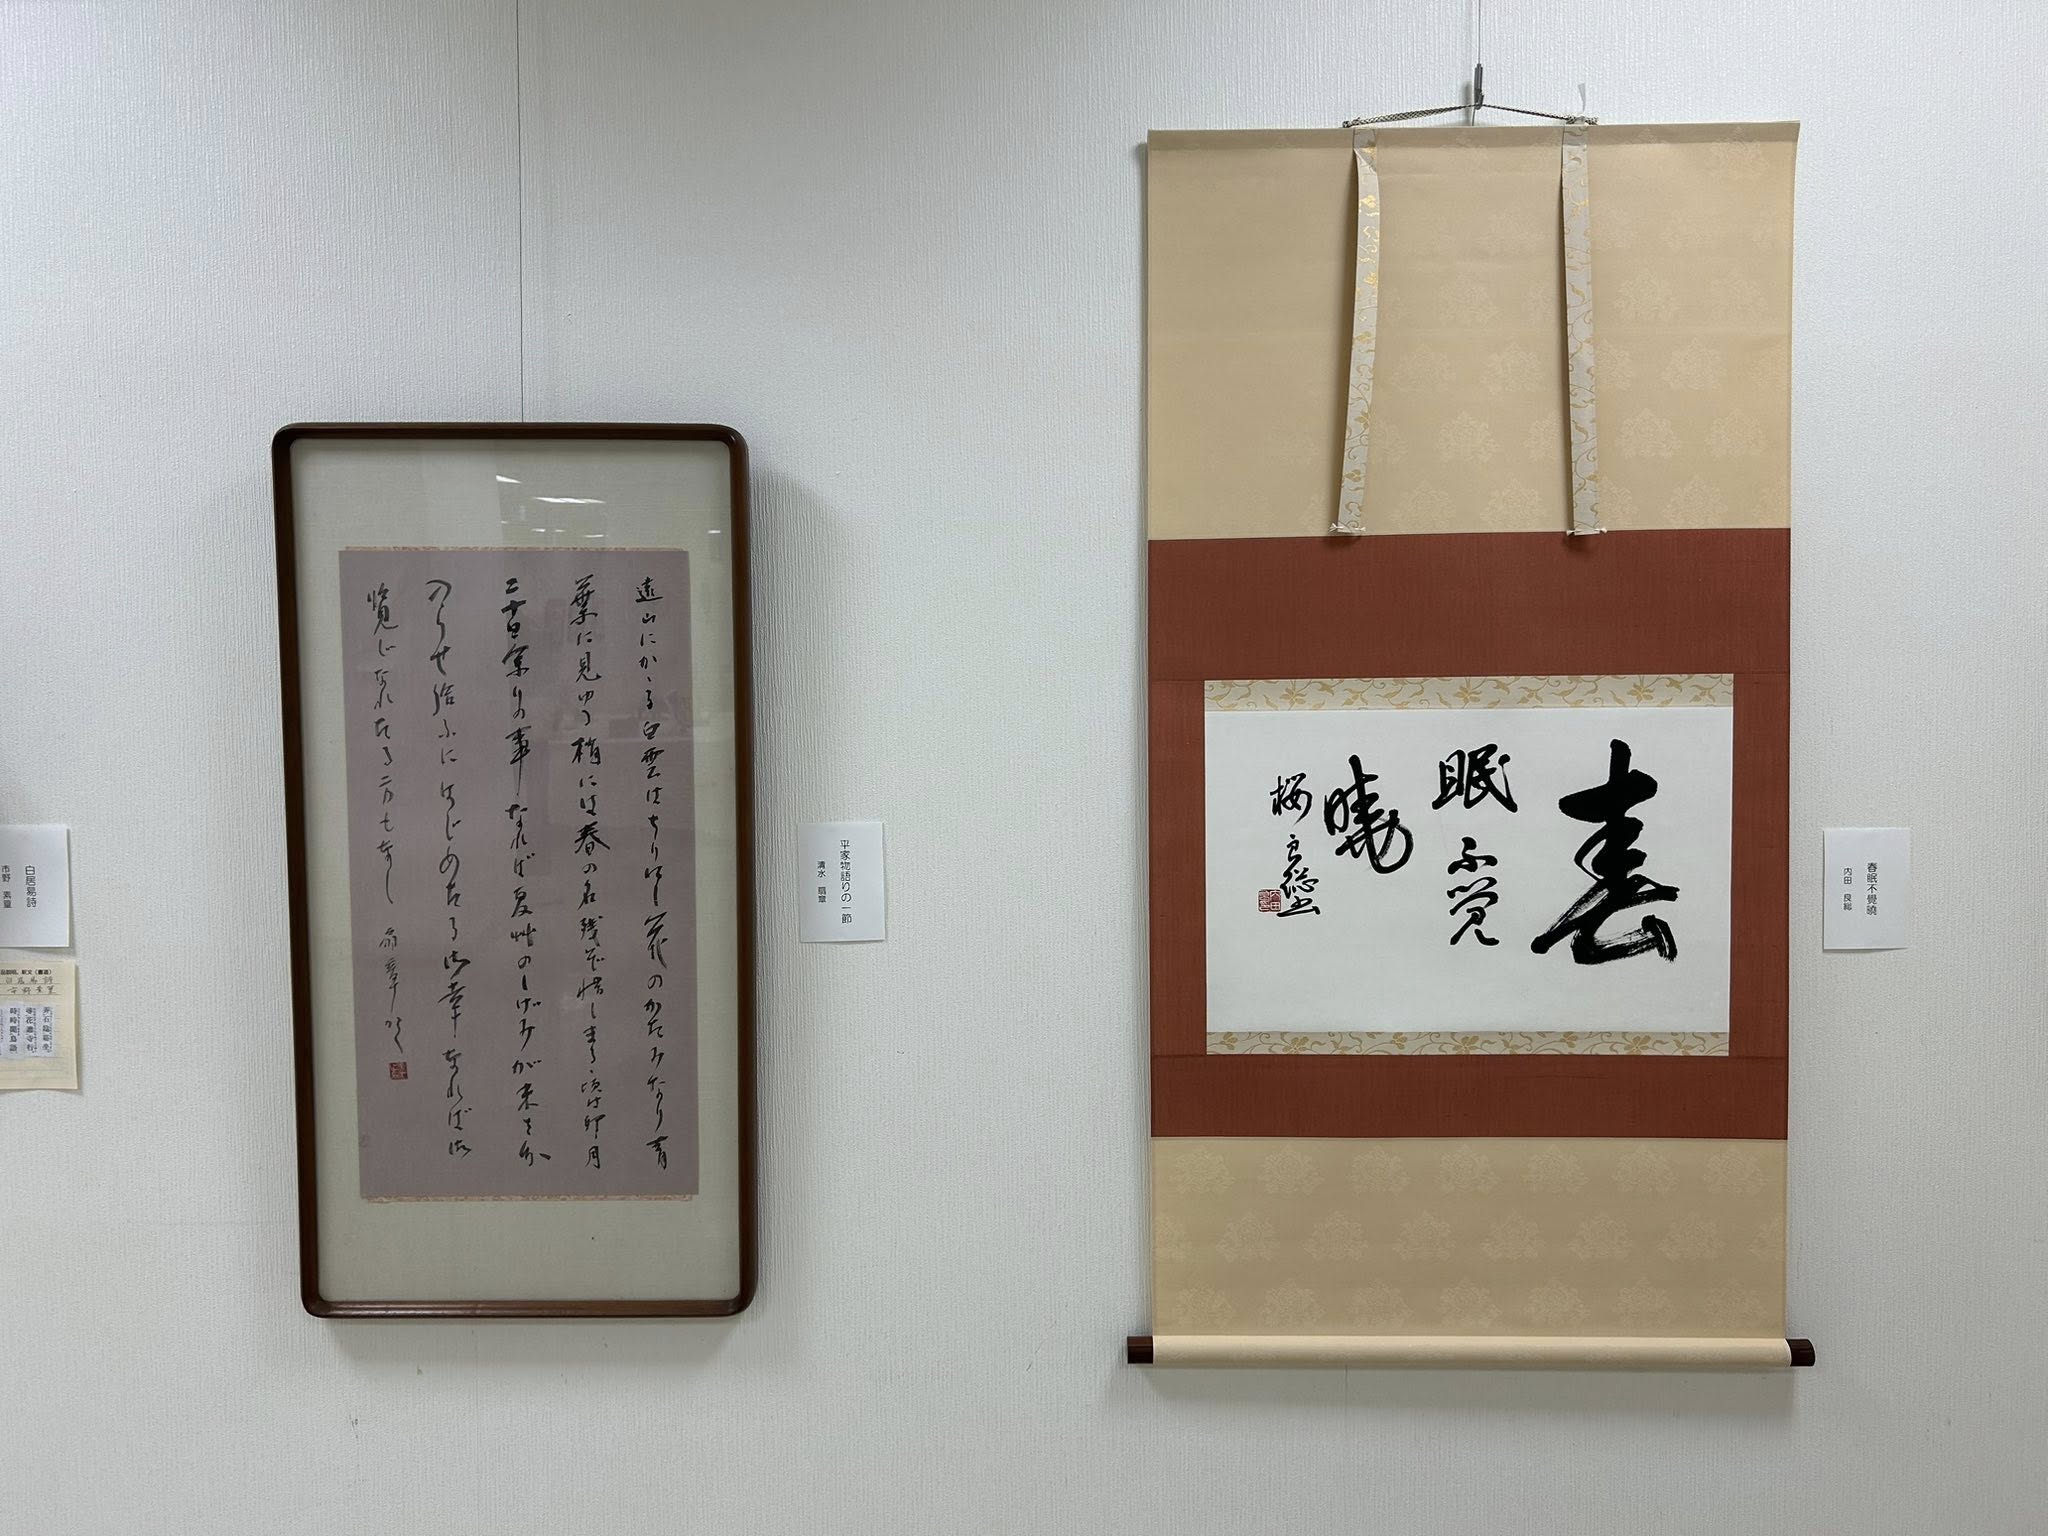 春
眠不覚
暁
桜
良総書
春眠不覺曉
内田 良総
遠山にかゝる白雲はちりにし花のかたみなり青
葉に見ゆる梢には春の名残ぞ惜しまるゝ頃は卯月
二十日余りの事なれば夏草のしげみが末を分
入らせ給ふにはじめたる御幸なれば御
覧じなれたる方もなし
扇章
平家物語りの一節
清水 扇章
白居易詩
市野
白居易詩